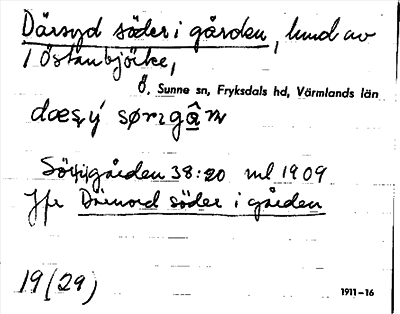 Därsyd söder i gården, lund av
1 Östanbjörke,
Ö. Sunne sn, Fryksdals hd, Värmlands län
Sörigården 38:20 ml 1909
Jfr Därnord söder i gården
19(29)
1911-16